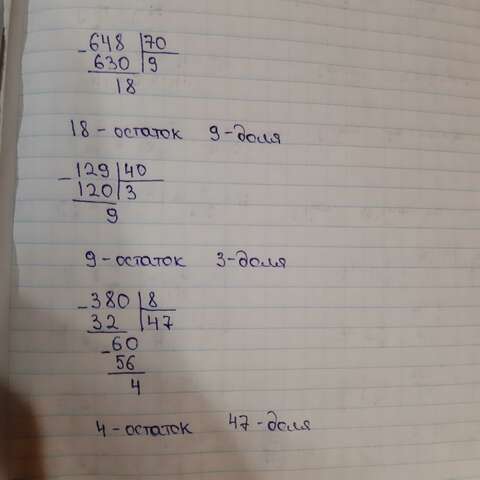 - 648 | 70
630 | 9
18
18 - остаток 9 - доля
- 129 | 40
120 | 3
9
9 - остаток 3 - доля
- 380 | 8
32 | 47
- 60
56
4
4 - остаток 47 - доля